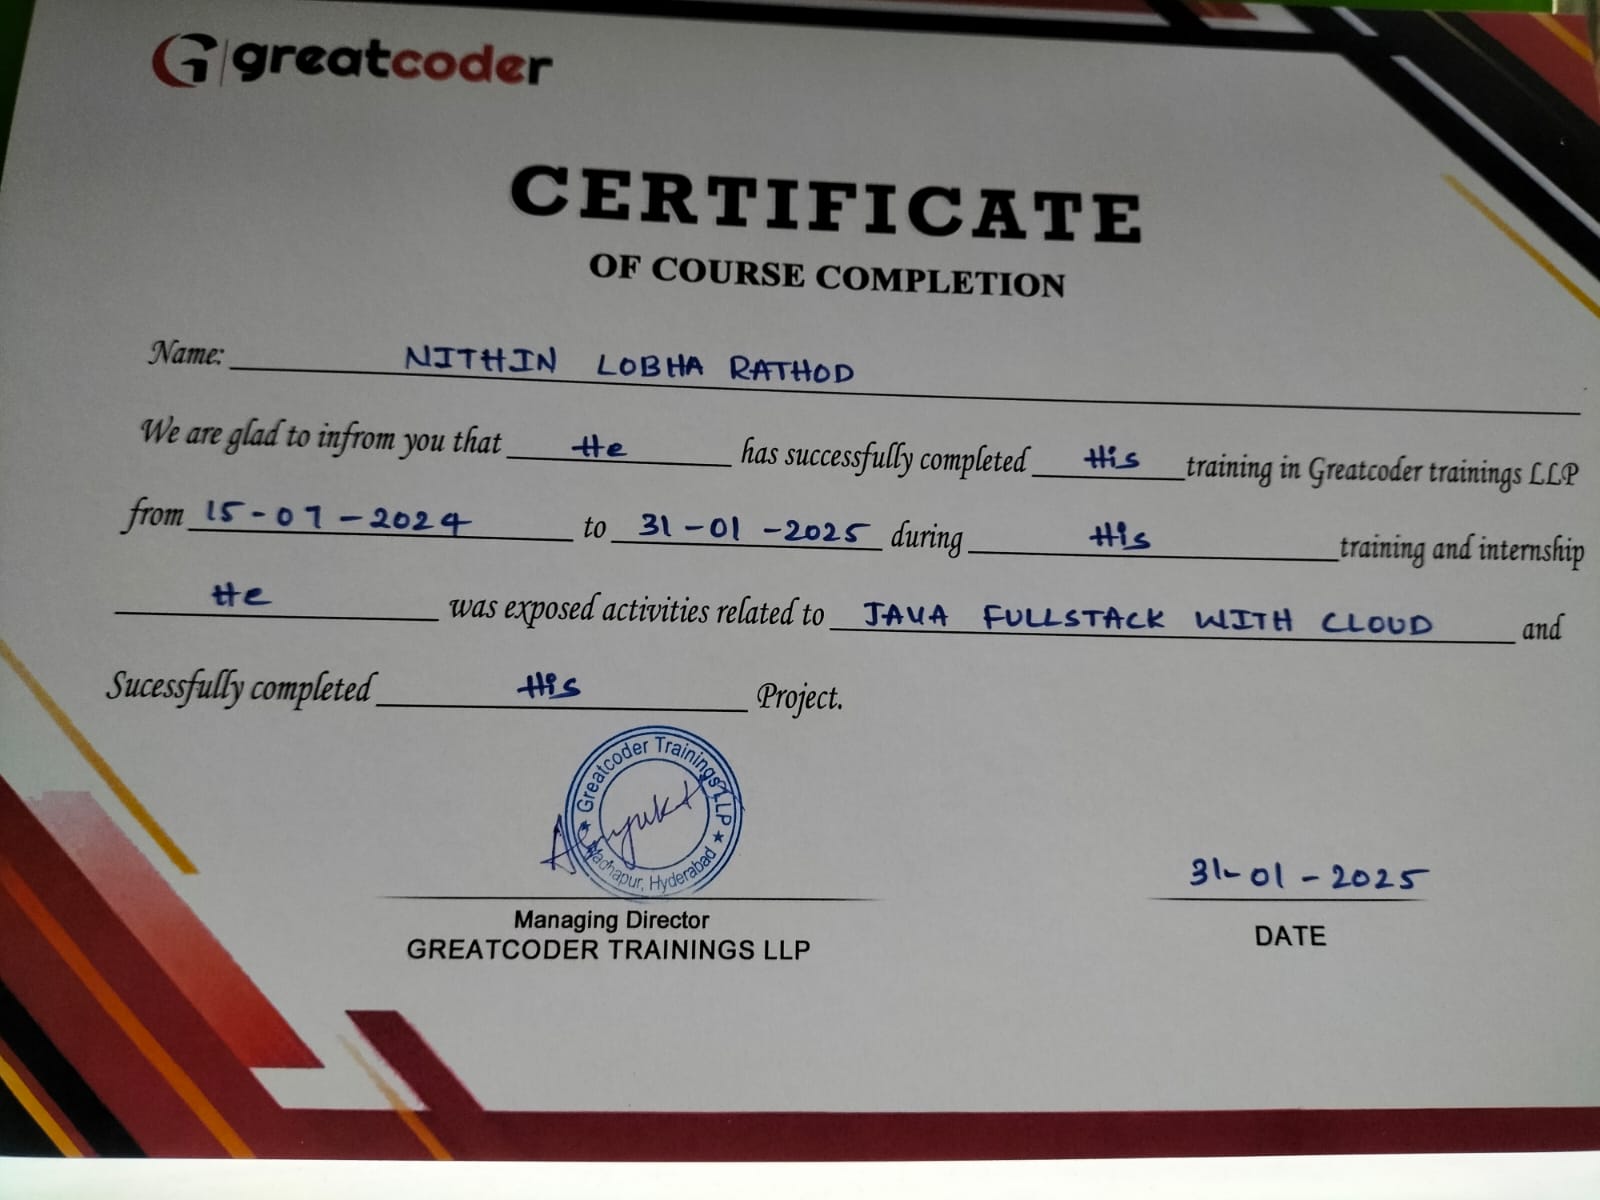 greatcoder
CERTIFICATE
OF COURSE COMPLETION
Name: NITHIN LOBHA RATHOD
We are glad to infrom you that He has successfully completed His training in Greatcoder trainings LLP
from 15-07-2024 to 31-01-2025 during His training and internship
He was exposed activities related to JAVA FULLSTACK WITH CLOUD and
Sucessfully completed His Project.
Greatcoder Trainings LLP
Madhapur, Hyderabad
31-01-2025
Managing Director
GREATCODER TRAININGS LLP
DATE